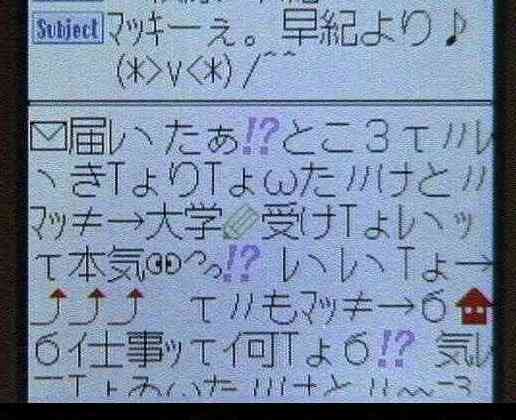 Subject ﾏッキーぇ。早紀より♪
(*>v<*)/^^
✉届レヽたぁ!?とこ3て〃レ
ヽきTょりTょωた〃けと〃
ﾏッ≠→大学✏受けTょレヽッ
て本気👀っ!? レヽレヽTょ→
⤴⤴⤴ て〃もﾏッ≠→б🏠
б亻仕事ッて何Tょб!? 気レ